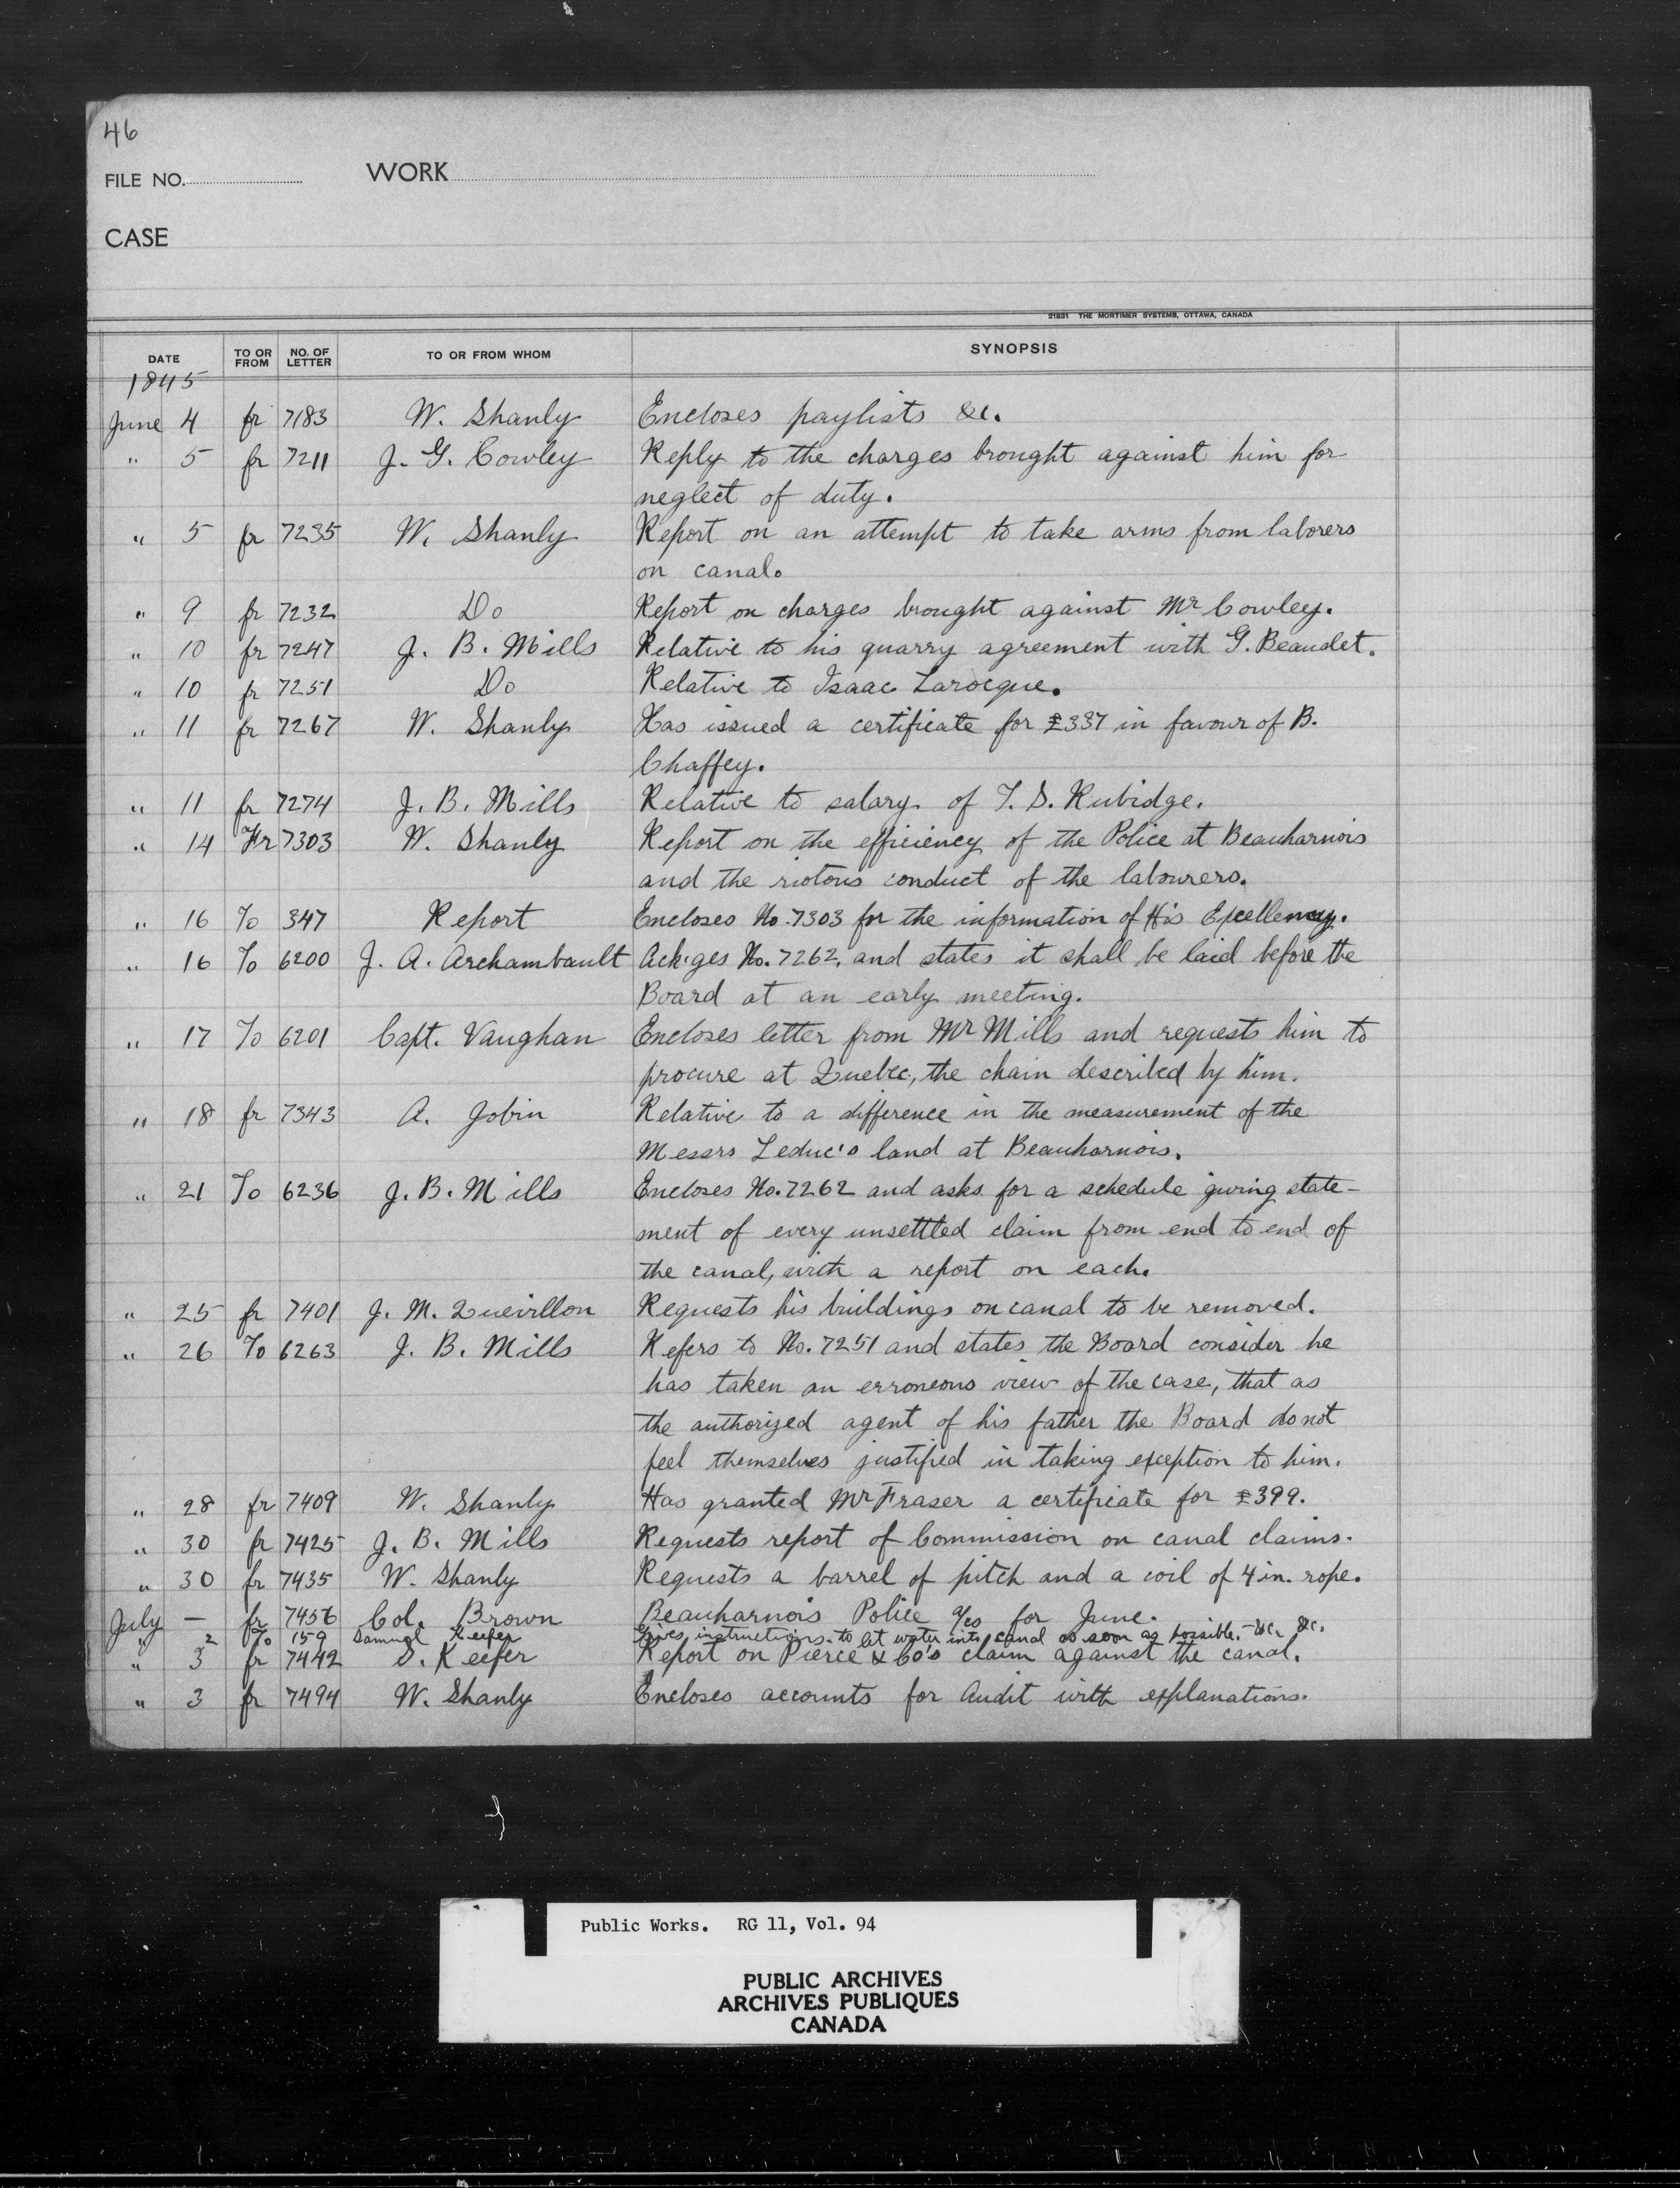 46
FILE NO. WORK
CASE
21831 THE MORTIMER SYSTEMS, OTTAWA, CANADA
DATE TO OR FROM NO. OF LETTER TO OR FROM WHOM SYNOPSIS
1845
June 4 fr 7183 W. Shanly Encloses paylists &c.
" 5 fr 7211 J. G. Cowley Reply to the charges brought against him for
neglect of duty.
" 5 fr 7235 W. Shanly Report on an attempt to take arms from laborers
on canal.
" 9 fr 7232 Do Report on charges brought against Mr Cowley.
" 10 fr 7247 J. B. Mills Relative to his quarry agreement with G. Beaudet.
" 10 fr 7251 Do Relative to Isaac Larocque.
" 11 fr 7267 W. Shanly Has issued a certificate for £337 in favour of B.
Chaffey.
" 11 fr 7274 J. B. Mills Relative to salary of T. S. Rubidge.
" 14 Fr 7303 W. Shanly Report on the efficiency of the Police at Beauharnois
and the riotous conduct of the labourers.
" 16 To 347 Report Encloses No. 7303 for the information of His Excellency.
" 16 To 6200 J. A. Archambault Ack'ges No. 7262, and states it shall be laid before the
Board at an early meeting.
" 17 To 6201 Capt. Vaughan Encloses letter from Mr Mills and requests him to
procure at Quebec, the chain described by him.
" 18 fr 7343 A. Jobin Relative to a difference in the measurement of the
Messrs Leduc's land at Beauharnois.
" 21 To 6236 J. B. Mills Encloses No. 7262 and asks for a schedule giving state-
ment of every unsettled claim from end to end of
the canal, with a report on each.
" 25 fr 7401 J. M. Quevillon Requests his buildings on canal to be removed.
" 26 To 6263 J. B. Mills Refers to No. 7251 and states the Board consider he
has taken an erroneous view of the case, that as
the authorized agent of his father the Board do not
feel themselves justified in taking exception to him.
" 28 fr 7409 W. Shanly Has granted Mr Fraser a certificate for £399.
" 30 fr 7425 J. B. Mills Requests report of Commission on canal claims.
" 30 fr 7435 W. Shanly Requests a barrel of pitch and a coil of 4 in. rope.
July — fr 7456 Col. Brown Beauharnois Police for June.
" 2 To 159 Samuel Keefer Gives instructions to let water into canal as soon as possible. &c. &c.
" 3 fr 7442 S. Keefer Report on Pierce & Co's claim against the canal.
" 3 fr 7494 W. Shanly Encloses accounts for Audit with explanations.
Public Works. RG 11, Vol. 94
PUBLIC ARCHIVES
ARCHIVES PUBLIQUES
CANADA